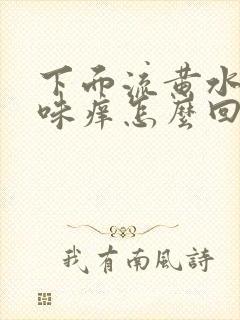 下面流黄水
味痒怎麽回
我有南風詩